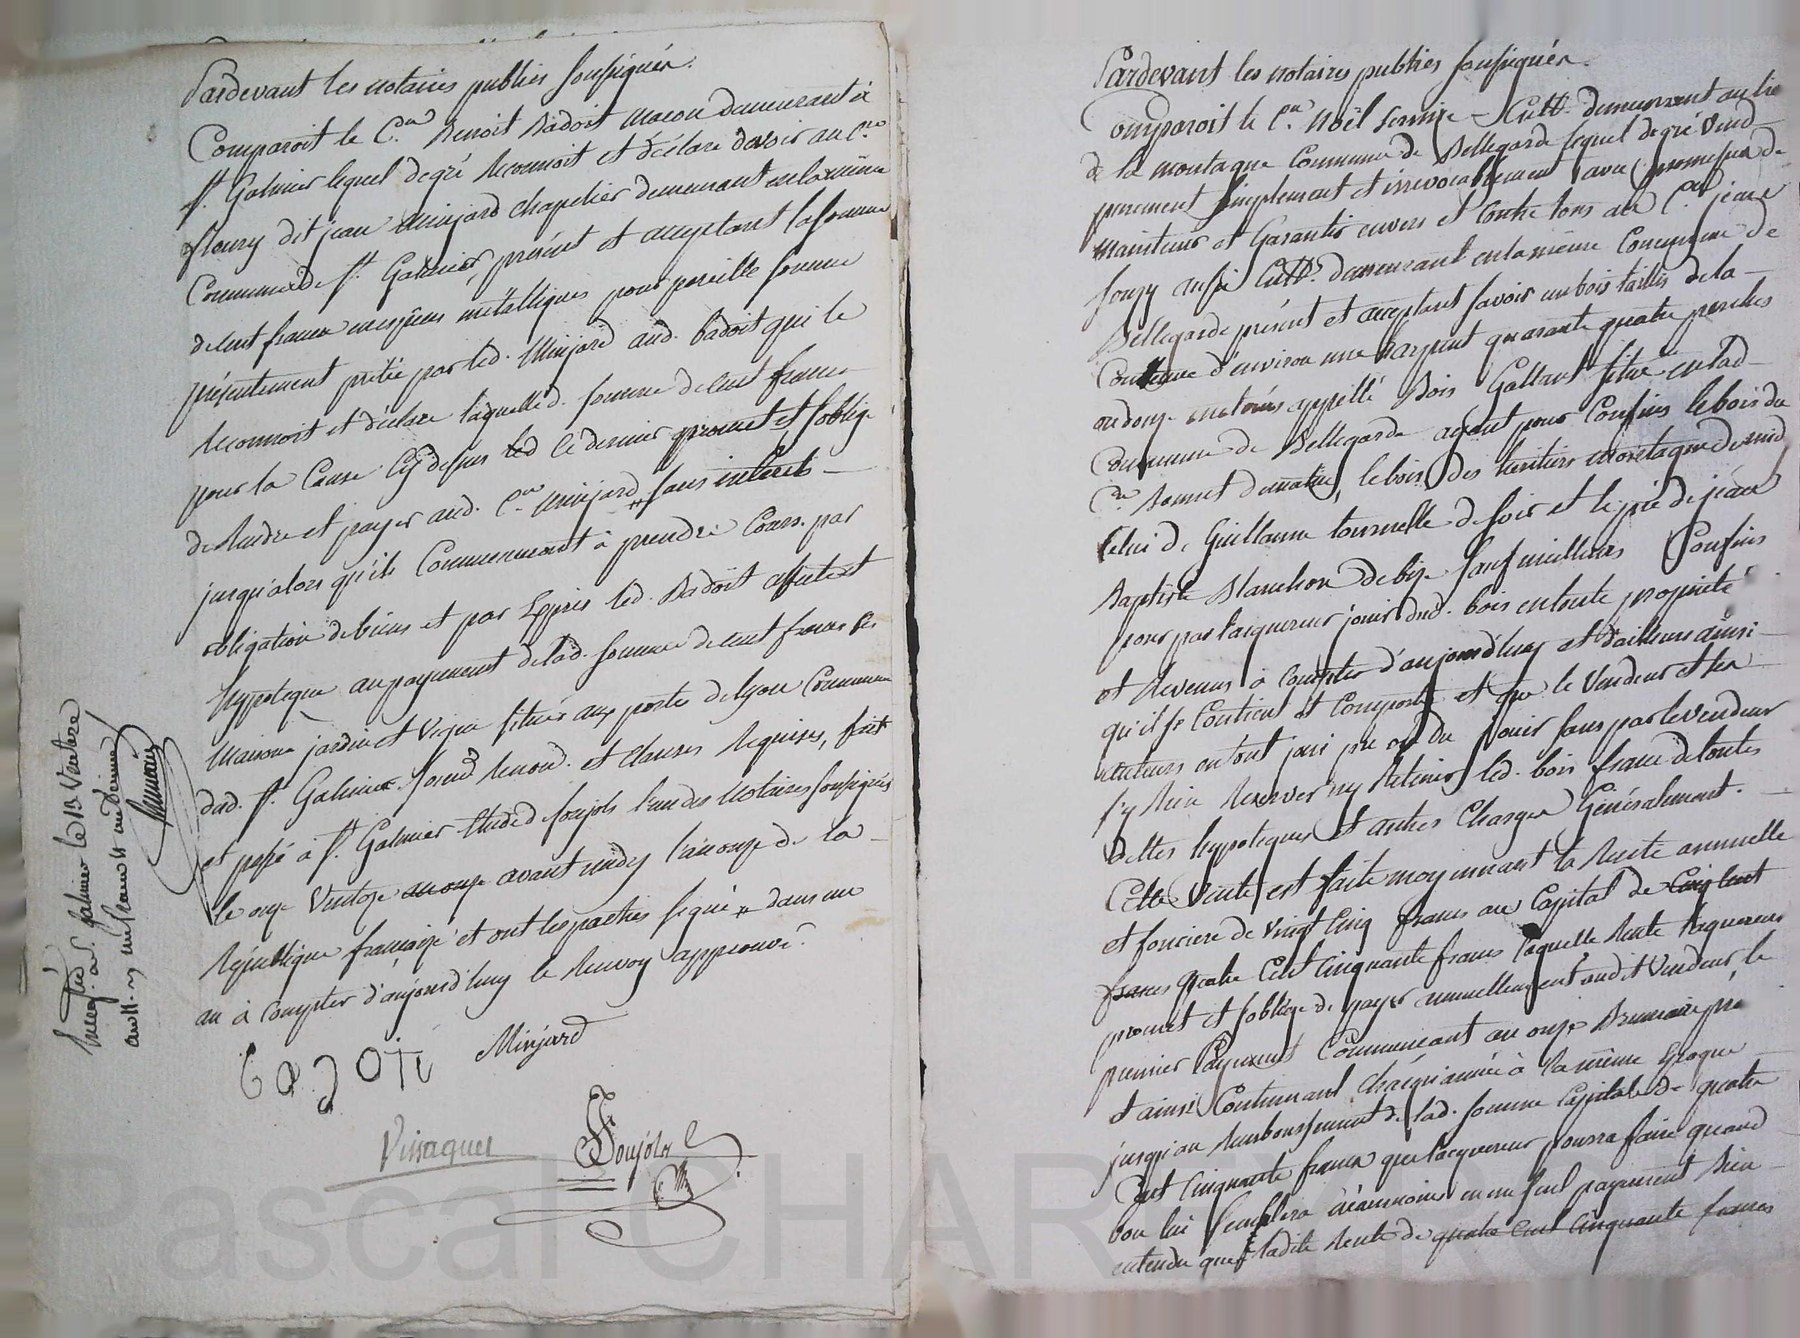 Pardevant les notaires publics soussignés.
Comparoit le C.en Benoit Badoit macon demeurant à
St. Galmier lequel degré reconnoit et déclare devoir au C.en
fleury dit jean Minjard chapelier demeurant en la même
Commune de St. Galmier, présent et acceptant la somme
de cent francs en espèces métalliques pour pareille somme
présentement prétée par led. Minjard aud. badoit qui le
reconnoit et déclare laquelle d. somme de cent francs
pour la Cause cy dessus led ce dernier promet et s'oblige
de rendre et payer aud. C.en Minjard " sans intérets
jusqu'alors qu'ils Commenceront à prendre Cours par
obligation de biens et par Exprès led. Badoit affecte et
hypoteque au payement de lad. somme de cent francs ses
maison jardin et vigne situés aux portes de lyon Commune
dud. St. Galmier soumd renond. et clauses requises, fait
et passé à St. Galmier Etude d soujols l'un des Notaires soussignés
le onze Ventose an onze avant midy l'an onze de la
République française et ont les parties signé " dans un
an à compter d'aujourd'huy le renvoy approuvé.
badoit Minjard
Vissaguet Soujols
Enregistré à St. Galmier le 13 Ventose
an 11. reçu un franc 11 au Dernier
Pardevant les notaires publics soussignés.
Comparoit le C.en Noël Cult. demeurant au lieu
de la montagne Commune de Bellegarde lequel degré vend
purement simplement et irrevocablement avec promesse de
maintenir et Garantir envers et contre tous au C.en jean
aussi Cult. demeurant en la même Commune de
Bellegarde présent et acceptant savoir un bois taillis de la
Contenue d'environ une arpent quarante quatre perches
ou douze appellé Bois Gallant situé en lad
Commune de Bellegarde ayant pour Confins le bois du
C.en Bonnet de matin, le bois des heritiers montagne de midi
Celui de Guillaume tournelle de soir et le pré de jean
Baptiste Blanchon de bize sauf meilleurs Confins
pour par l'acquereur jouir dud. bois en toute propriété
et Revenus à compter d'aujourd'huy et d'ailleurs ainsi
qu'il se Contient et Comporte et que le Vendeur et ses
auteurs en ont joui pu ou du jouir sans par le vendeur
s'y Rien Reserver ny Retenir led. bois franc de toutes
dettes hypoteques et autres Charges Généralement.
Cette vente est faite moyennant la Rente annuelle
et fonciere de vingt Cinq francs au Capital de Cinq Cent
francs quatre Cent Cinquante francs laquelle Rente l'aquereur
promet et s'oblige de payer annuellement audit Vendeur, le
premier Payement Commencant au onze Brumaire pro
et ainsi Continuant chaque année à la même Epoque
jusqu'au Remboursement de lad. somme Capitale de quatre
Cent Cinquante francs que l'acquereur pourra faire quand
bon lui semblera néanmoins en un seul payement bien
entendu que ladite Rente de quatre cent cinquante francs
Pascal CHAR